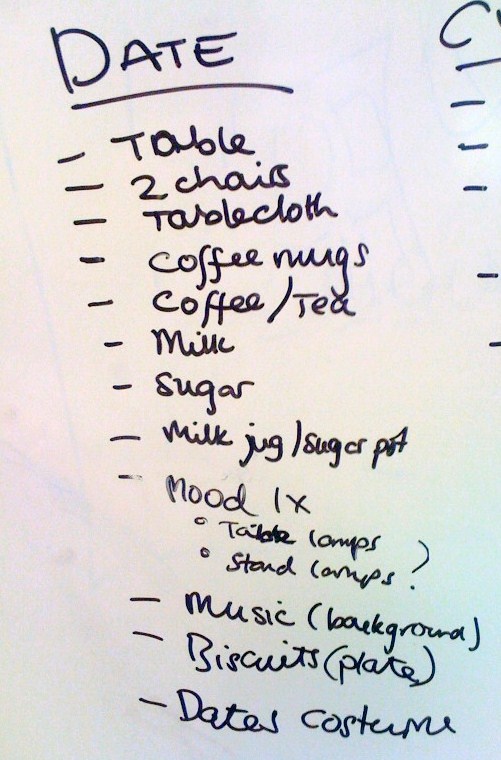 DATE
- Table
- 2 chairs
- Tablecloth
- Coffee mugs
- Coffee/Tea
- Milk
- Sugar
- Milk jug/sugar pot
- Mood LX
° Table lamps
° Stand lamps ?
- Music (background)
- Biscuits (plate)
- Dates costume